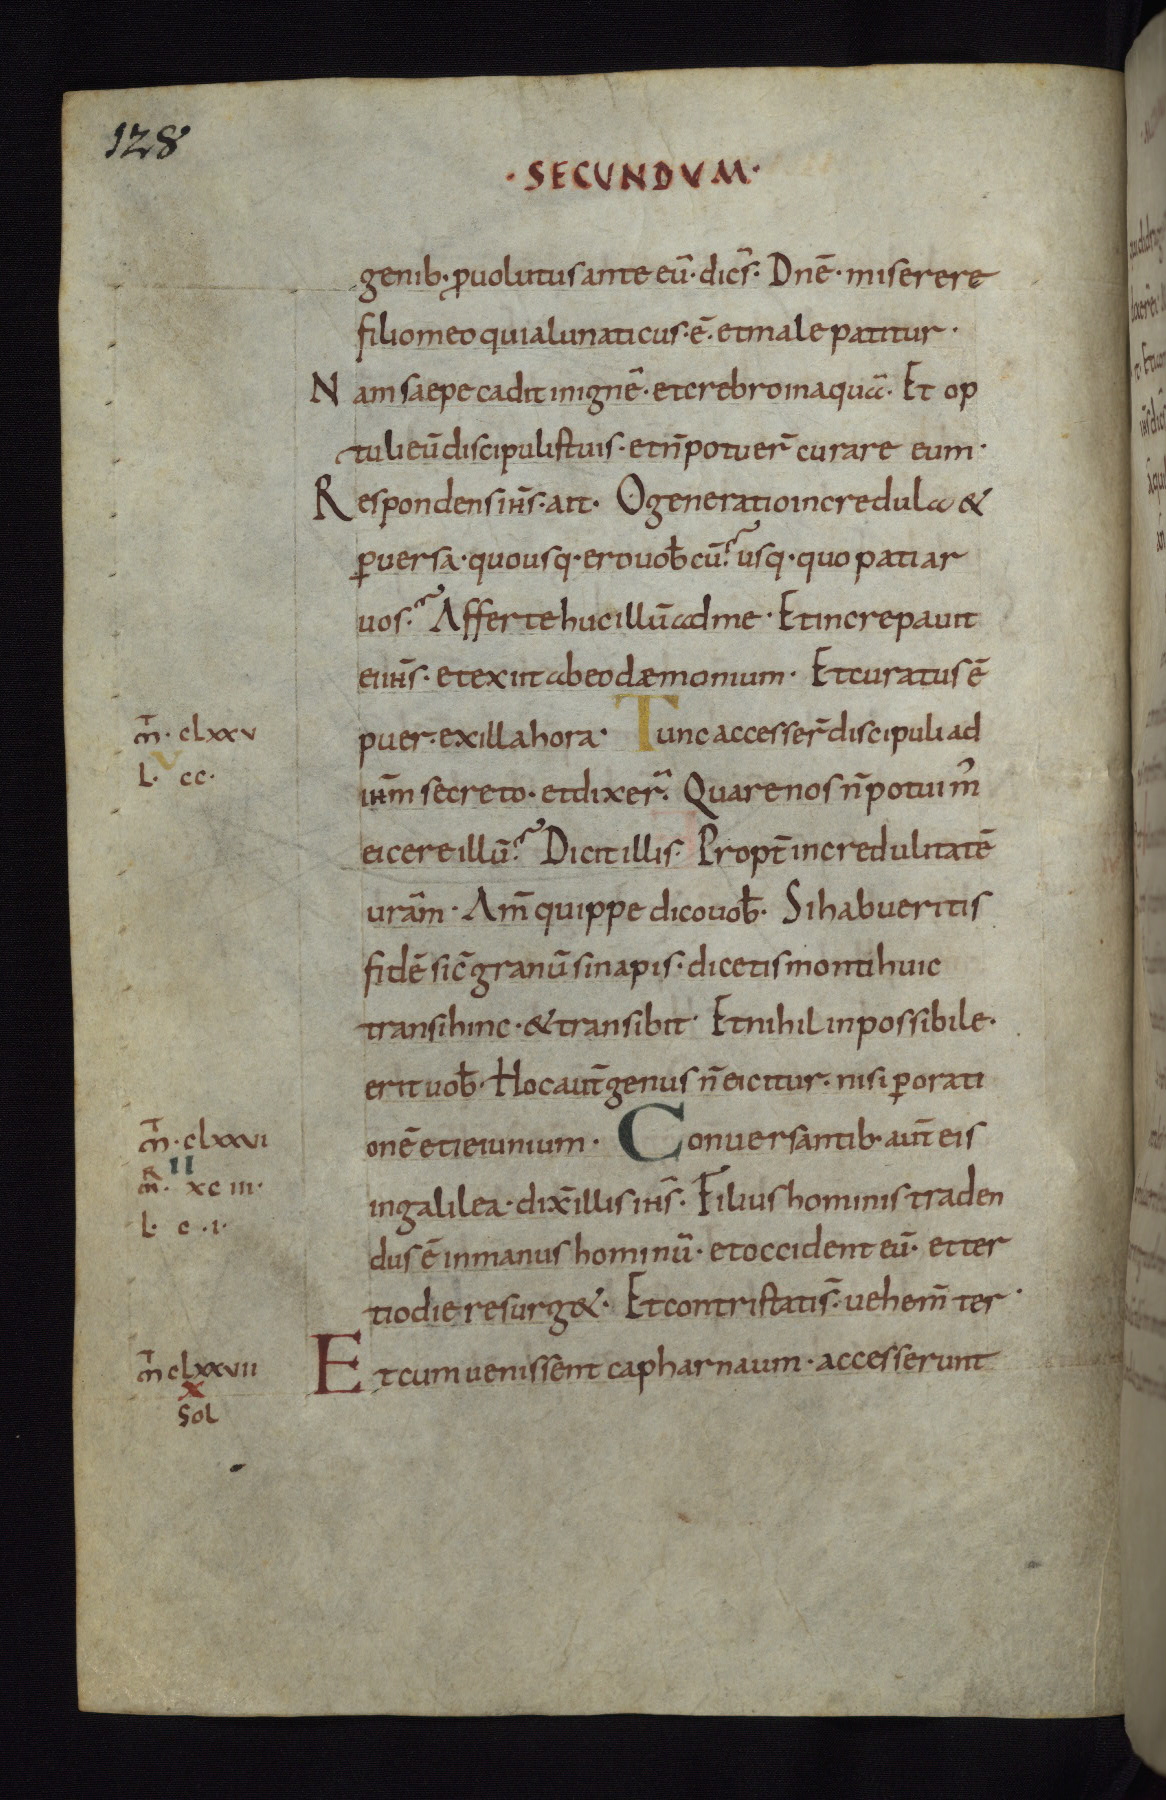 128
·SECUNDVM·
genib· ꝓuolutus ante eū· dicēs· Dn̄e· miserere
filio meo quia lunaticus· ē· et male patitur·
Nam saepe cadit in ignē· et crebro in aquā· Et op
tuli eū discipulis tuis· et n̄ potuer̄ curare eum·
Respondens ih̄s· ait· O generatio incredula &
ꝑuersa· quousq· ero uob̄ cū? usq· quo patiar
uos? Afferte huc illū ad me· Et increpauit
ei ih̄s· et exiit ab eo dæmonium· Et curatus ē
m̄t· clxxv
puer· ex illa hora· Tunc accesser̄ discipuli ad
V
L· cc·
ih̄m secreto· et dixer̄· Quare nos n̄ potuim̄
eicere illū? Dicit illis· Propt̄ incredulitatē
urām· Am̄ quippe dico uob̄· Si habueritis
fidē sic̄ granū sinapis· dicetis monti huic
transi hinc· & transibit· Et nihil inpossibile·
erit uob̄· Hoc aut̄ genus n̄ eicitur· nisi ꝑ orati
m̄t· clxxvi
onē et ieiunium· Conuersantib· aut̄ eis
II
m̄r· xciii·
in galilea· dix̄ illis ih̄s· Filius hominis traden
L· c·i·
dus ē in manus hominū· et occident eū· et ter
tio die resurg&· Et contristati s̄· uehem̄ter·
m̄t clxxvii
Et cum uenissent capharnaum· accesserunt
X
Sol